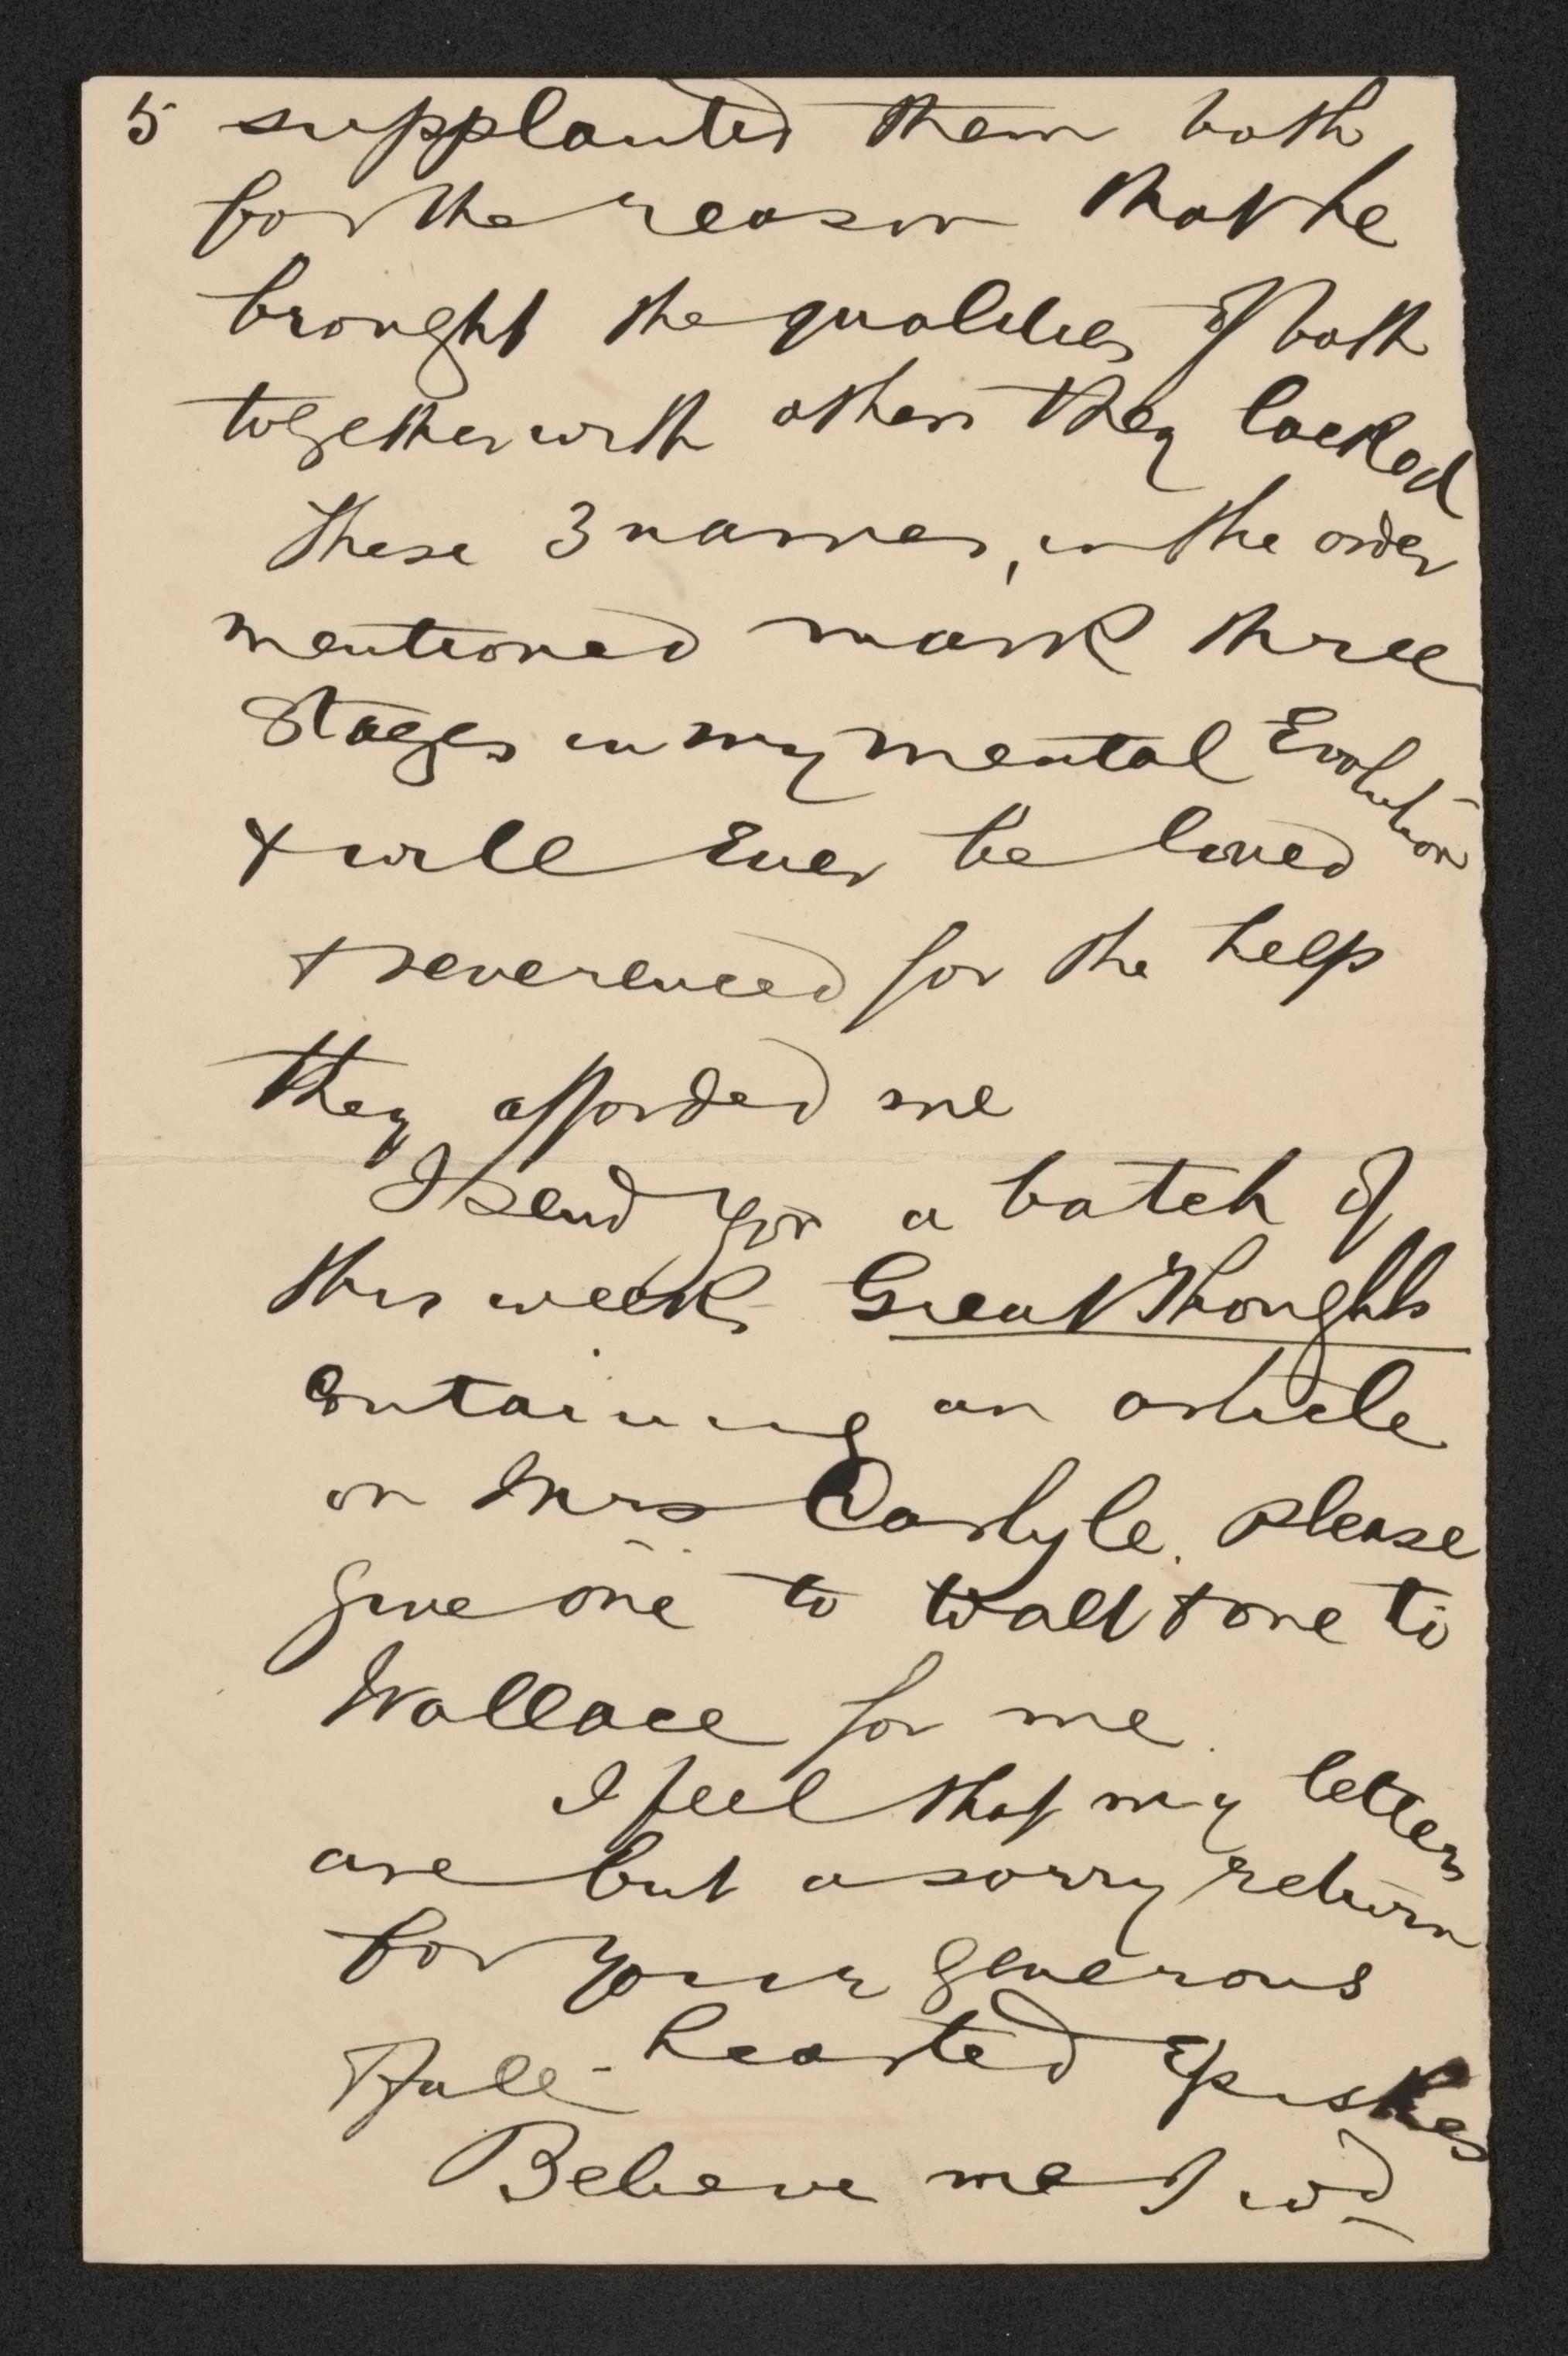 5 supplanted them both
for the reason that he
brought the qualities of both
together with others they lacked
These 3 names, in the order
mentioned mark three
stages in my mental Evolution
& will ever be loved
& reverenced for the help
they afforded me
I send you a batch of
this week's Great Thoughts
containing an article
on Mrs Carlyle. Please
give one to Walt & one to
Wallace for me.
I feel that my letters
are but a sorry return
for your generous
full-hearted Epistles
Believe me I wd